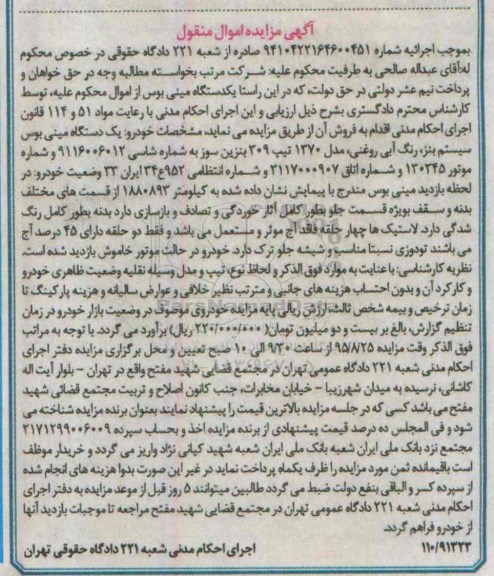 آگهی مزایده اموال منقول
بموجب اجرائیه شماره ۹۴۱۰۴۲۲۱۶۴۶۰۰۴۵۱ صادره از شعبه ۲۲۱ دادگاه حقوقی در خصوص محکوم
له:آقای عبداله صالحی به طرفیت محکوم علیه: شرکت مرتب بخواسته مطالبه وجه در حق خواهان و
پرداخت نیم عشر دولتی در حق دولت، که در این راستا یکدستگاه مینی بوس از اموال محکوم علیه، توسط
کارشناس محترم دادگستری بشرح ذیل ارزیابی و این اجرای احکام مدنی با رعایت مواد ۵۱ و ۱۱۴ قانون
اجرای احکام مدنی اقدام به فروش آن از طریق مزایده می نماید، مشخصات خودرو: یک دستگاه مینی بوس
سیستم بنز، رنگ آبی روغنی، مدل ۱۳۷۰ تیپ ۳۰۹ بنزین سوز به شماره شاسی ۹۱۱۶۰۰۶۰۱۲ و شماره
موتور ۱۳۰۳۴۵ و شماره اتاق ۳۱۱۷۰۰۰۹۰۷ و شماره انتظامی ۹۵۲ع۳۴ ایران ۳۳ وضعیت خودرو: در
لحظه بازدید مینی بوس مندرج با پیمایش نشان داده شده به کیلومتر ۱۸۸۰۸۹۳ از قسمت های مختلف
بدنه و سقف بویژه قسمت جلو بطور کامل آثار خوردگی و تصادف و بازسازی دارد بدنه بطور کامل رنگ
شدگی دارد. لاستیک ها چهار حلقه فاقد آج موثر و مستعمل می باشد و فقط دو حلقه دارای ۴۵ درصد آج
می باشند تودوزی نسبتا مناسب و شیشه جلو ترک دارد. خودرو در حالت موتور خاموش بازدید شده است.
نظریه کارشناسی: با عنایت به موارد فوق الذکر و لحاظ نوع، تیپ و مدل وسیله نقلیه وضعیت ظاهری خودرو
و کارکرد آن و بدون احتساب هزینه های جانبی و مترتب نظیر خلافی و عوارض سالیانه و هزینه پارکینگ تا
زمان ترخیص و بیمه شخص ثالث، ارزش ریالی پایه مزایده خودروی موصوف در وضعیت بازار خودرو در زمان
تنظیم گزارش، بالغ بر بیست و دو میلیون تومان( ۲۲۰/۰۰۰/۰۰۰ ریال) برآورد می گردد. با توجه به مراتب
فوق الذکر وقت مزایده ۹۵/۸/۲۵ از ساعت ۹/۳۰ الی ۱۰ صبح تعیین و محل برگزاری مزایده دفتر اجرای
احکام مدنی شعبه ۲۲۱ دادگاه عمومی تهران در مجتمع قضایی شهید مفتح واقع در تهران – بلوار آیت اله
کاشانی، نرسیده به میدان شهرزیبا – خیابان مخابرات، جنب کانون اصلاح و تربیت مجتمع قضائی شهید
مفتح می باشد کسی که در جلسه مزایده بالاترین قیمت را پیشنهاد نمایند بعنوان برنده مزایده شناخته می
شود و فی المجلس ده درصد قیمت پیشنهادی از برنده مزایده اخذ و بحساب سپرده ۲۱۷۱۲۹۹۰۰۶۰۰۹
مجتمع نزد بانک ملی ایران شعبه بانک ملی ایران شعبه شهید کیانی نژاد واریز می گردد و خریدار موظف
است باقیمانده ثمن مورد مزایده را ظرف یکماه پرداخت نماید در غیر این صورت بدوا هزینه های انجام شده
از سپرده کسر و الباقی بنفع دولت ضبط می گردد طالبین میتوانند ۵ روز قبل از موعد مزایده به دفتر اجرای
احکام مدنی شعبه ۲۲۱ دادگاه عمومی تهران در مجتمع قضایی شهید مفتح مراجعه تا موجبات بازدید آنها
از خودرو فراهم گردد.
۱۱۰/۹۱۳۲۳ اجرای احکام مدنی شعبه ۲۲۱ دادگاه حقوقی تهران